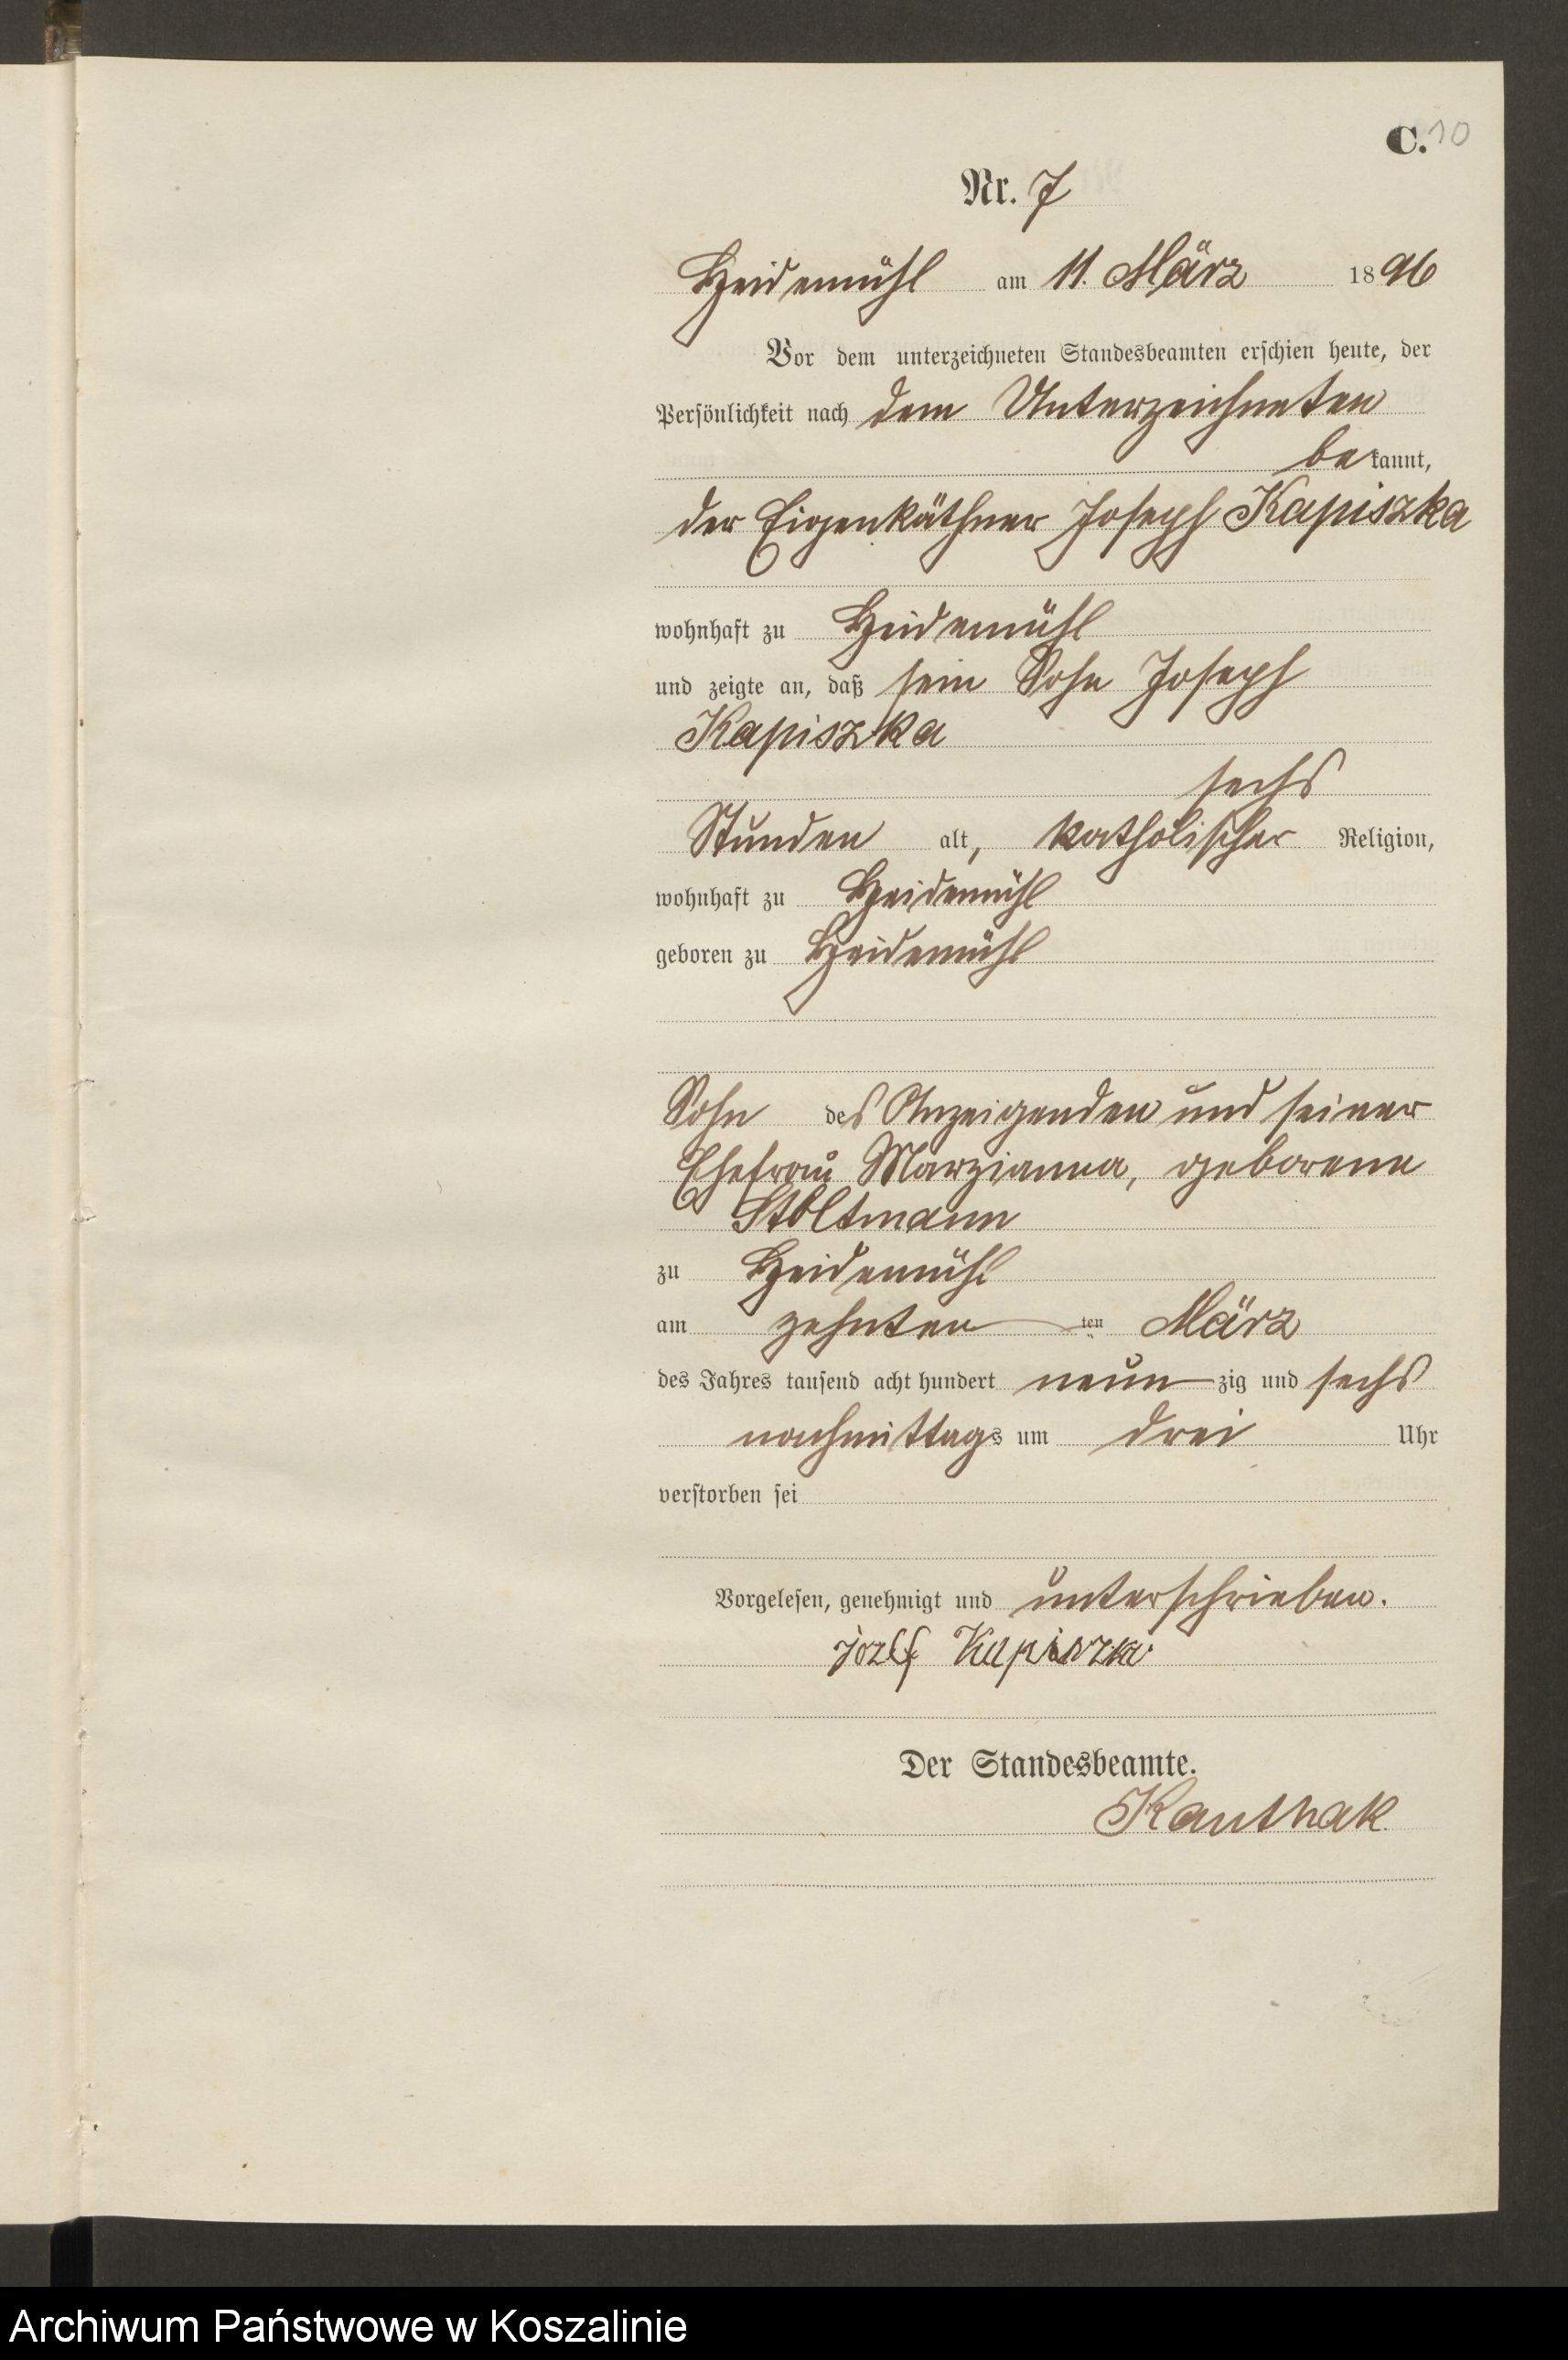 C. 10
Nr. 7
Heidemühl am 11. März 1896
Vor dem unterzeichneten Standesbeamten erschien heute, der
Persönlichkeit nach dem Unterzeichneten
bekannt,
der Eigenkäthner Joseph Kapiszka
wohnhaft zu Heidemühl
und zeigte an, daß sein Sohn Joseph
Kapiszka
sechs
Stunden alt, katholischer Religion,
wohnhaft zu Heidemühl
geboren zu Heidemühl
Sohn des Anzeigenden und seiner
Ehefrau Marzianna, geborene
Stoltmann
zu Heidemühl
am zehnten ten März
des Jahres tausend acht hundert neunzig und sechs
nachmittags um drei Uhr
verstorben sei
Vorgelesen, genehmigt und unterschrieben.
józef Kapiszka
Der Standesbeamte.
Kanthak
Archiwum Państwowe w Koszalinie